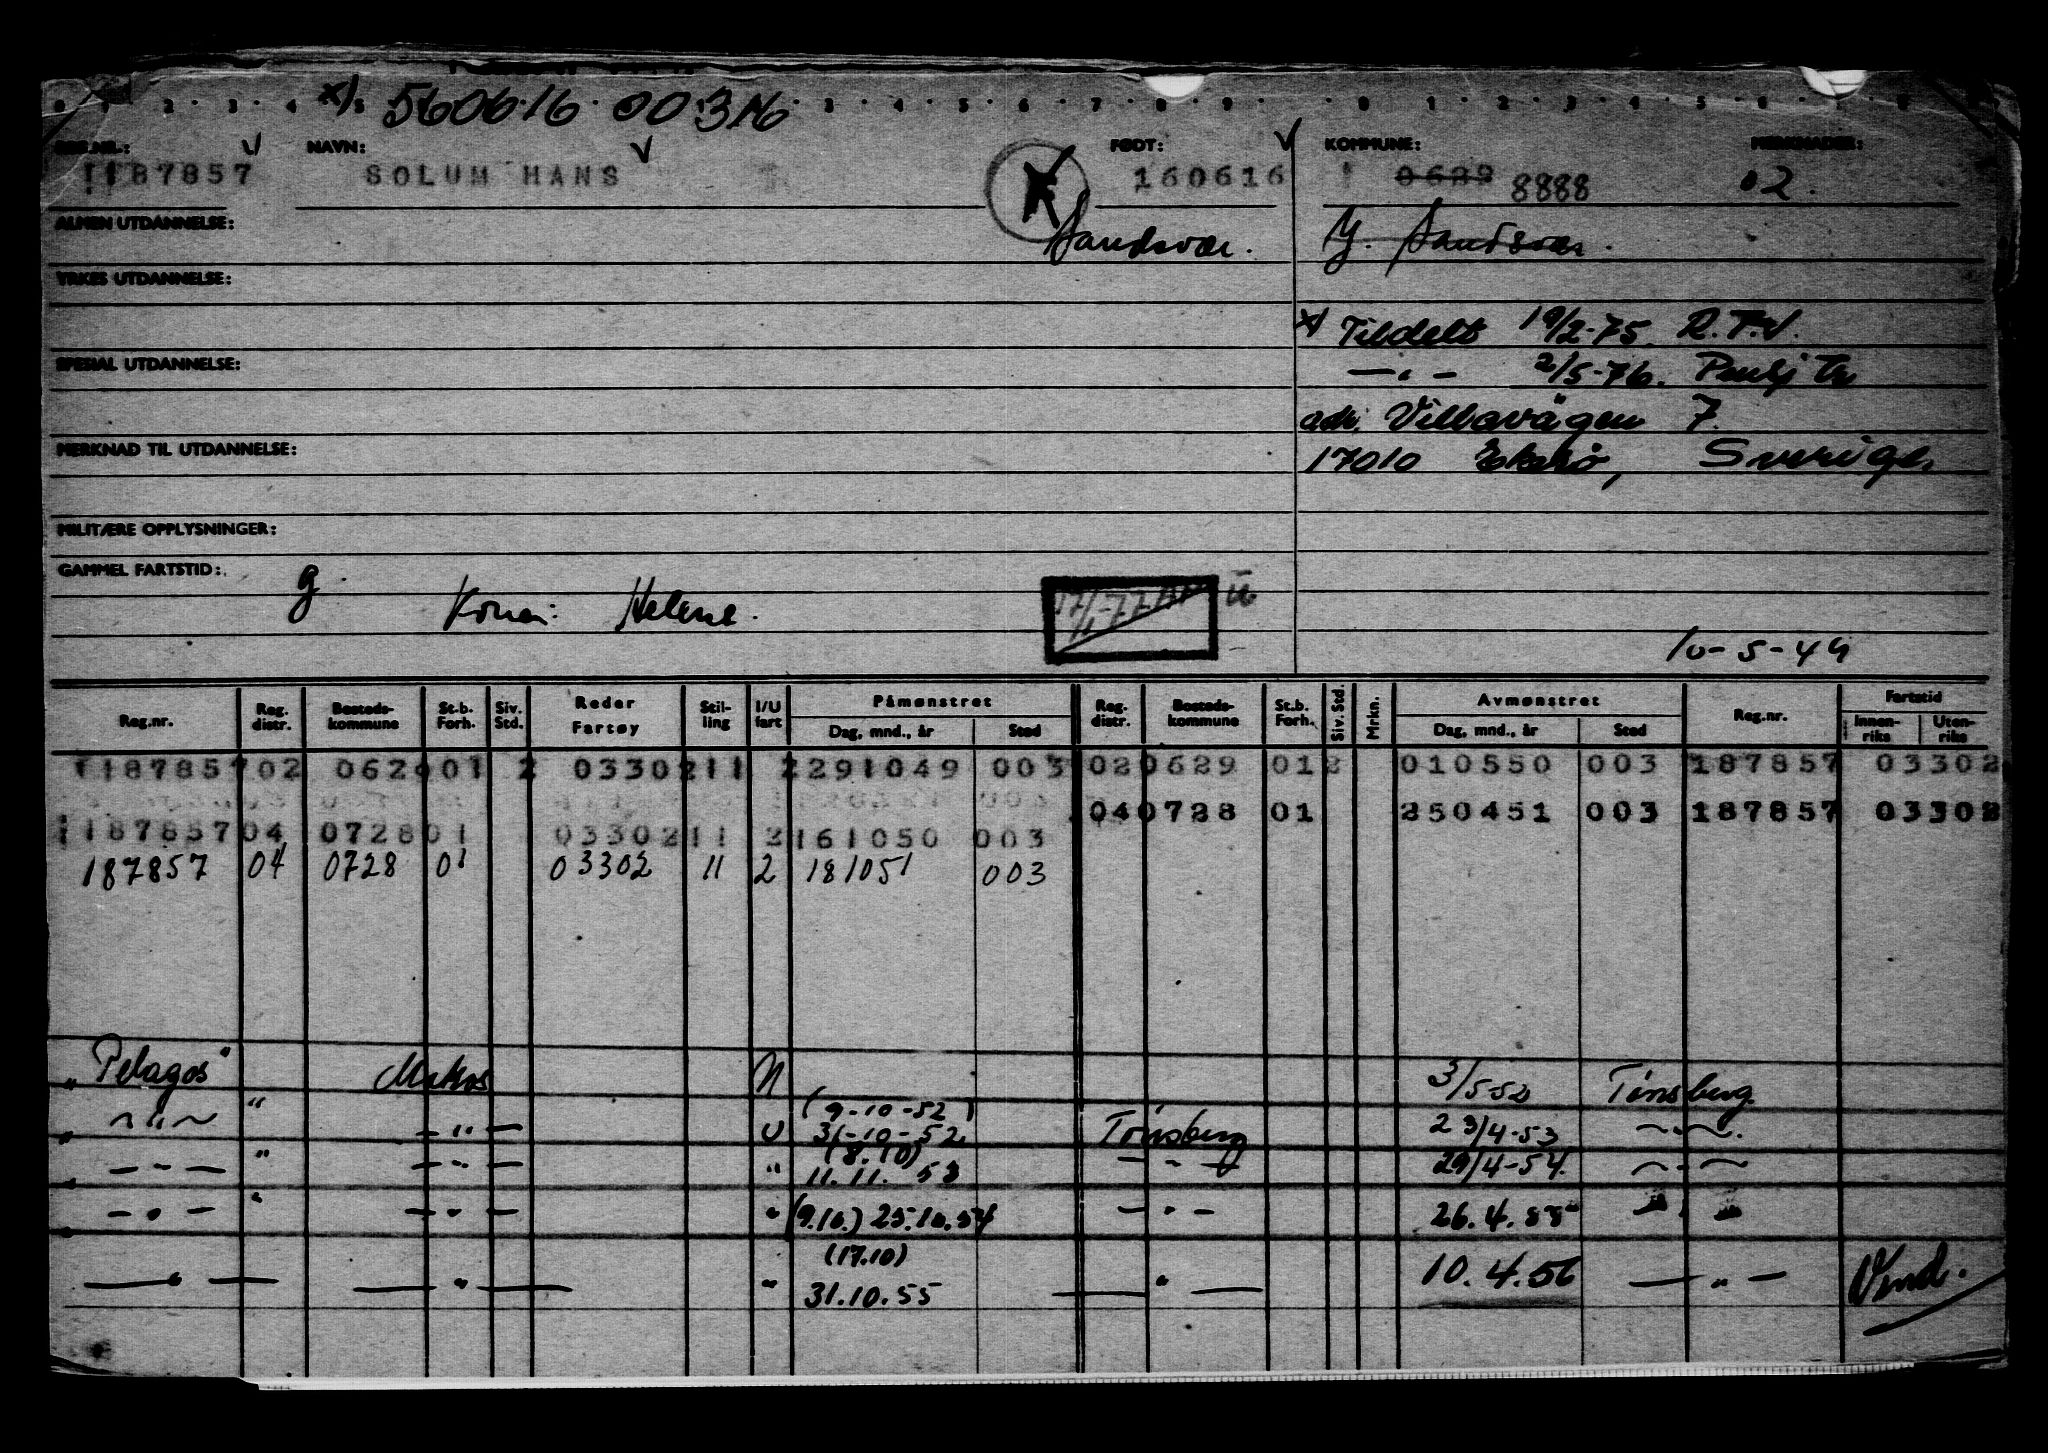 x) 560616 00316
REG.NR.: NAVN: FØDT: KOMMUNE: MERKNADER:
187857 SOLUM HANS 160616 0629 8888 02.
ALMEN UTDANNELSE: Sandsvær. Y. Sandsvær.
YRKES UTDANNELSE:
x) Tildelt 19/2-75. R.T.V.
SPESIAL UTDANNELSE: —„— 2/5-76.
adr. Villavägen 7.
MERKNAD TIL UTDANNELSE: 17010 Ekerö, Sverige
MILITÆRE OPPLYSNINGER:
GAMMEL FARTSTID: g
Kone: Helene.
10-5-49
Reg.nr. Reg. distr. Bosteds- kommune St.b. Forh. Siv. Std. Reder Fartøy Stil- ling I/U fart Påmønstret Dag, mnd., år Sted Reg. distr. Bosteds- kommune St.b. Forh. Siv. Std. Mrkn. Avmønstret Dag, mnd., år Sted Reg.nr. Fartstid Innen- riks Uten- riks
187857 02 0629 01 2 03302 11 2 291049 003 02 0629 01 2 010550 003 187857 03302
04 0728 01 250451 003 187857 03302
187857 04 0728 01 03302 11 2 161050 003
187857 04 0728 01 03302 11 2 181051 003
„Pelagos" 3/5-52 Tønsberg
„ —„— " —„— U (9-10-52) 31-10-52 Tønsberg 23/4-53 —„—.
„ — - — " — - — " (8.10) 11.11. 53 — - — 29/4-54. — - —
„ — - — " — - — " (9.10.) 25.10.54 — - — 26.4. " "
—„— —„— " (17.10) 31.10.55 —„— 10.4.56 —„— Vend.